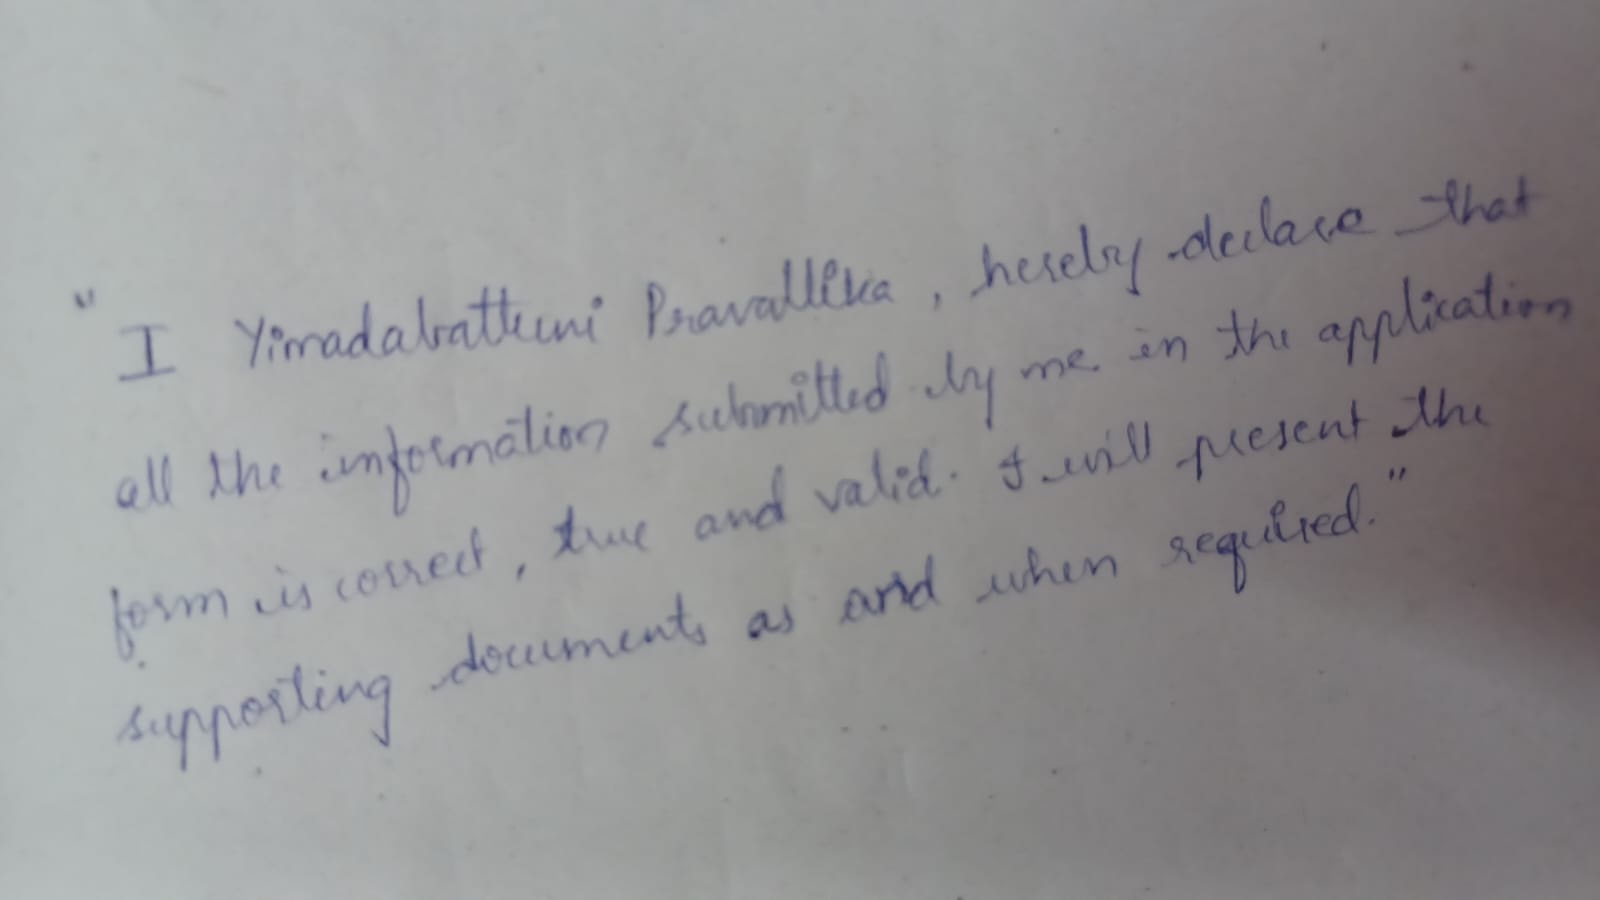 "I Yimadabattuni Pravallika, hereby declare that
all the information submitted by me in the application
form is correct, true and valid. I will present the
supporting documents as and when required."